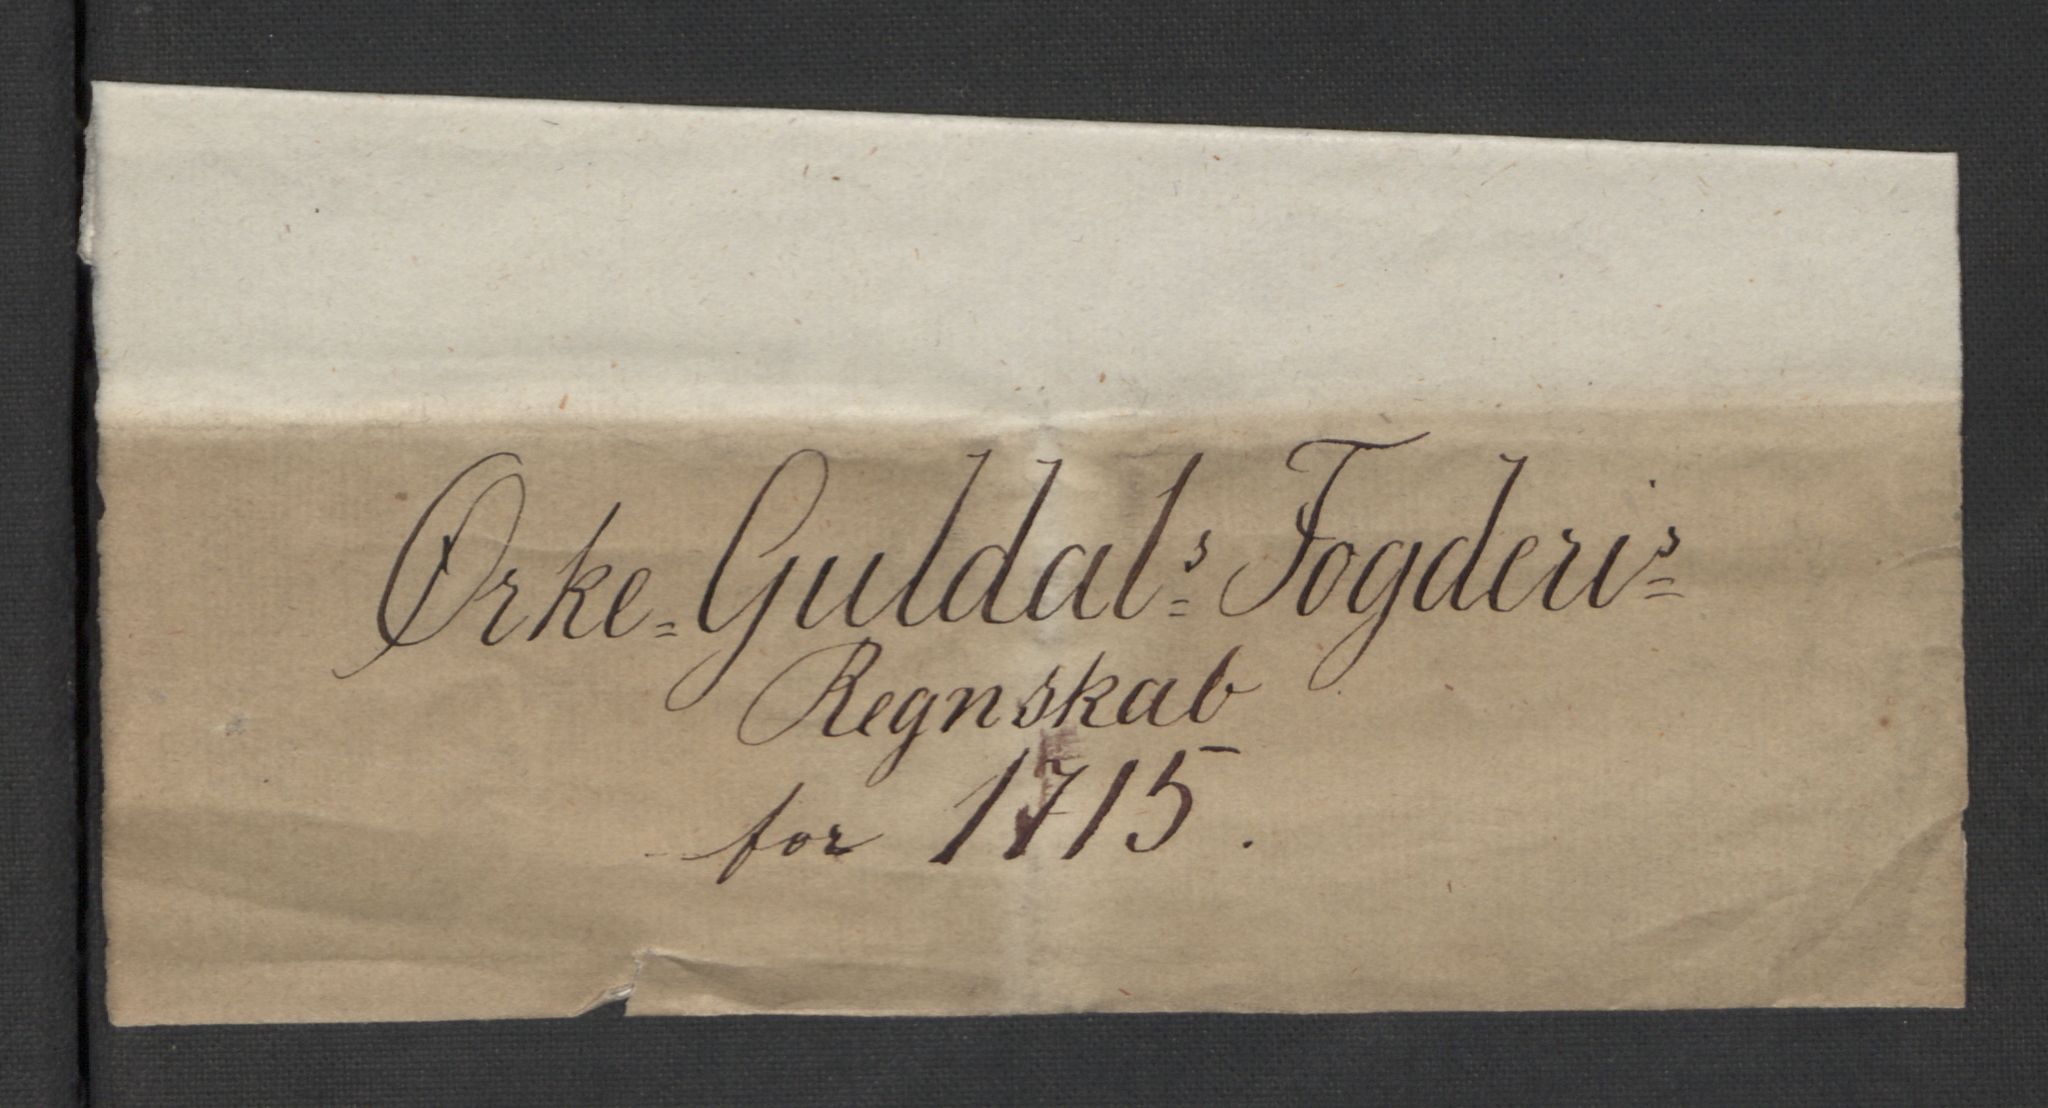 Ørke=Guldals= Fogderis=
Regnskab
for 1715.